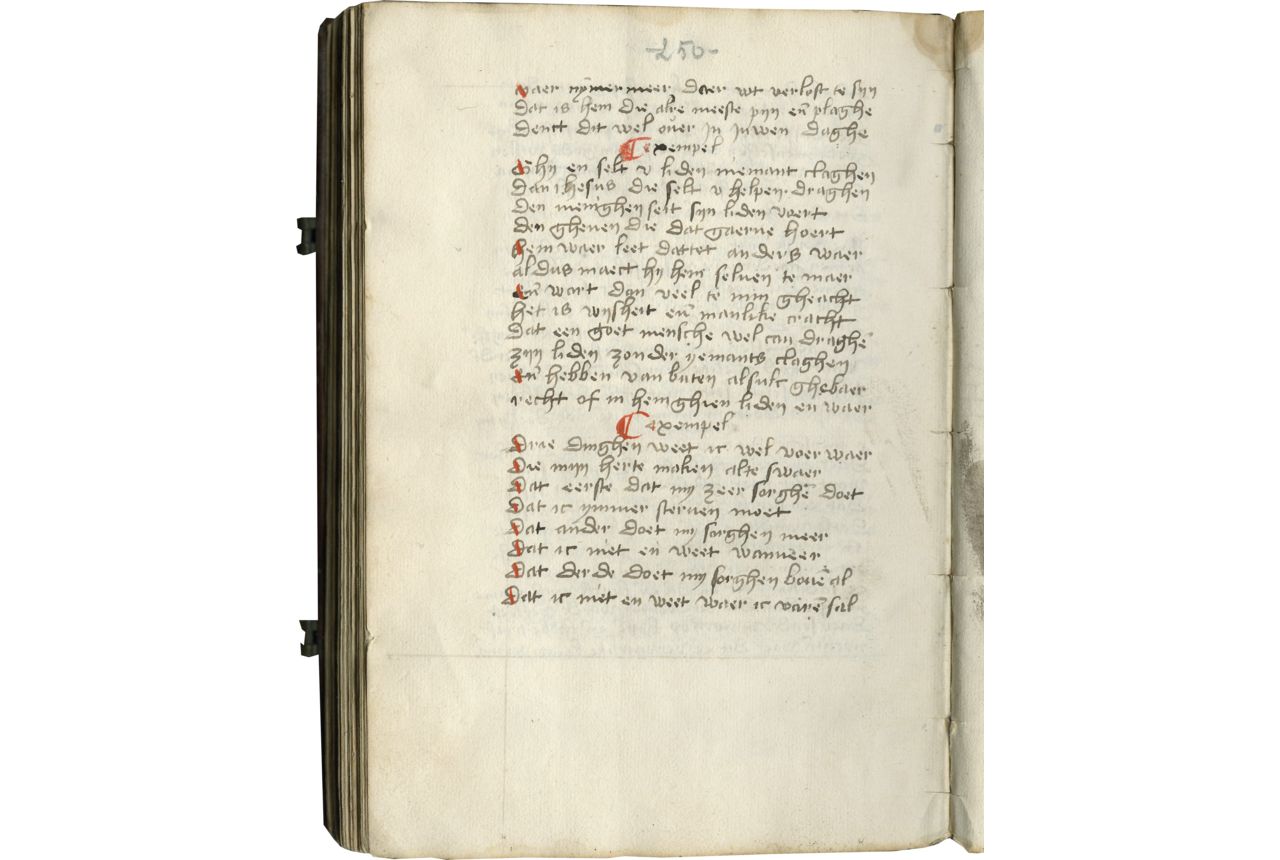 -250-
vaer nymermeer daer wt verlost te sijn
dat is hem die alre meeste pijn eñ plaghe
denct dit wel ouer in juwen daghe
Exempel
Ghij en selt v liden niemant claghen
dan ihesus die selt v helpen draghen
den menighen seit sijn liden voert
den ghenen die dat gaerne hoert
hem waer leet dattet anders waer
aldus maect hij hem seluen te maer
eñ wart dan veel te min gheacht
het is wijsheit eñ manlike cracht
dat een goet mensche wel can draghē
zijn liden zonder yemants claghen
eñ hebben van buten alsulc ghebaer
recht of in hem ghien liden en waer
Exempel
Drie dinghen weet ic wel voer waer
Die mijn herte maken alte swaer
Dat eerste dat my zeer sorghē doet
Dat ic ymmer steruen moet
Dat ander doet my sorghen meer
Dat ic niet en weet wanneer
Dat derde doet my sorghen bouē al
Dat ic niet en weet waer ic varē sal